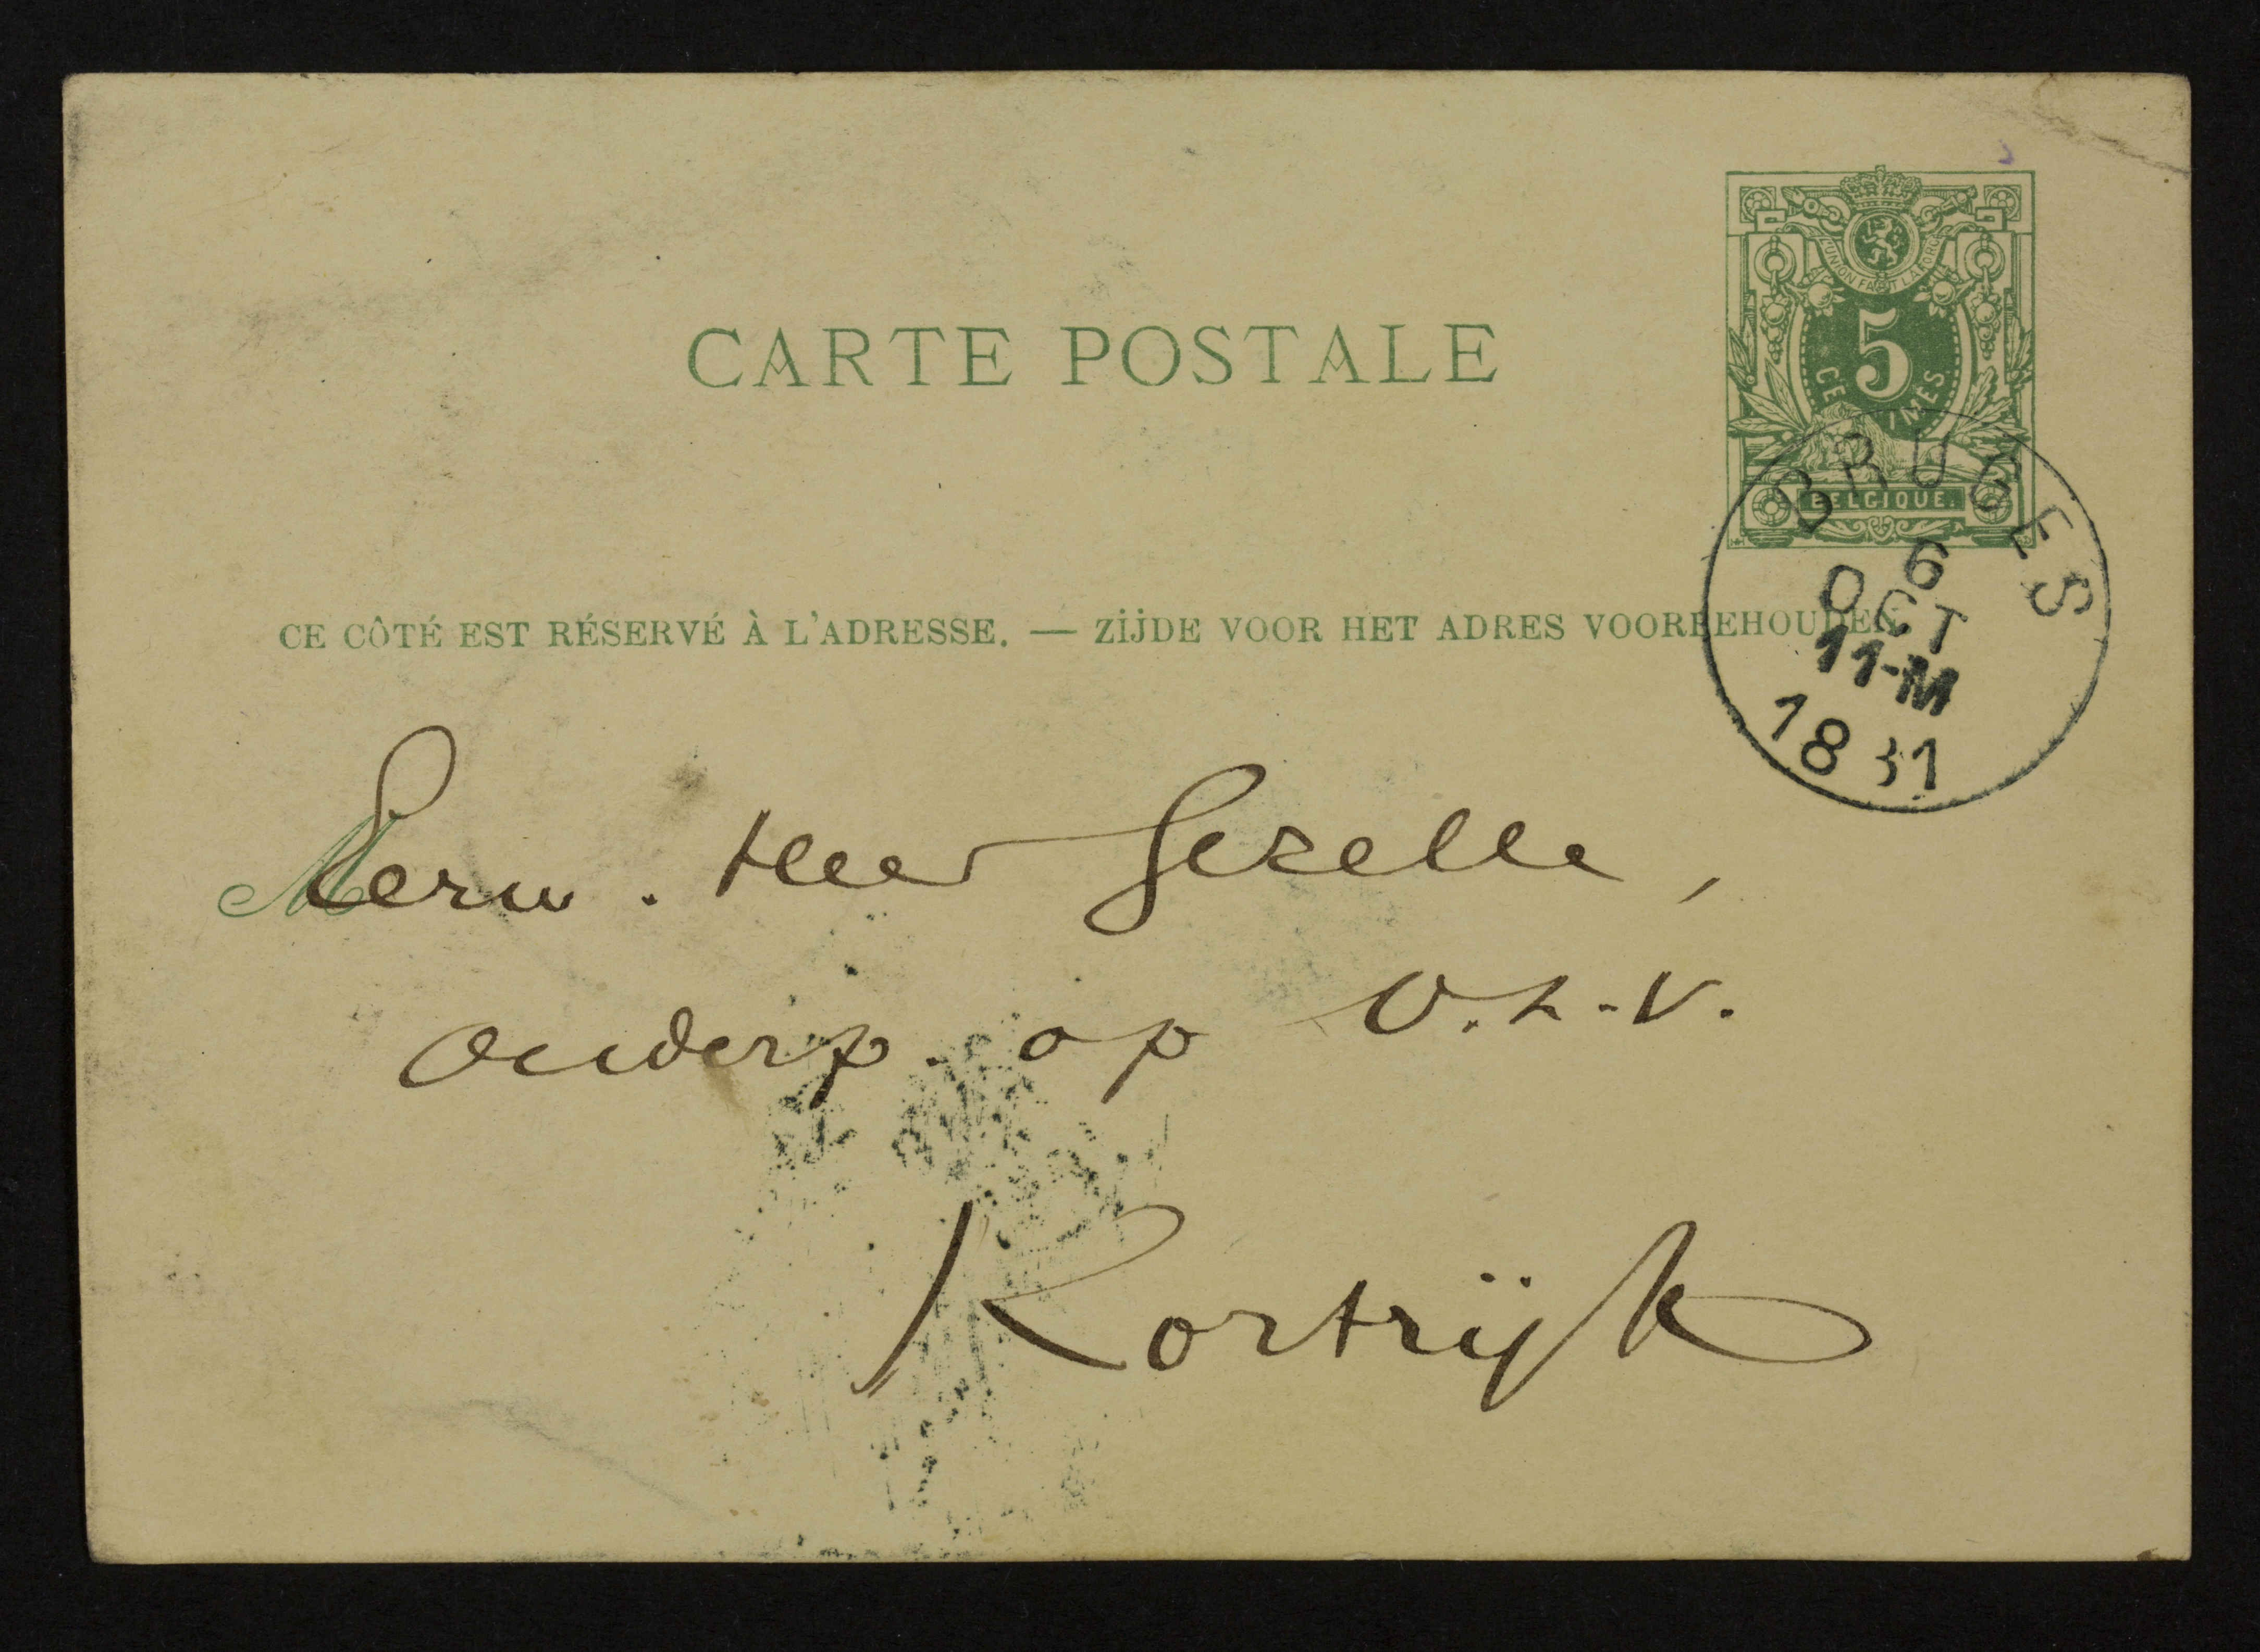 L'UNION FAIT LA FORCE
CARTE POSTALE
5
CENTIMES
BELGIQUE.
BRUGES
6
OCT
11-M
CE CÔTÉ EST RÉSERVÉ À L'ADRESSE. — ZIJDE VOOR HET ADRES VOORBEHOUDEN.
M
Eerw. Heer Gezelle,
onderp. op O.L.V.
Kortrijk